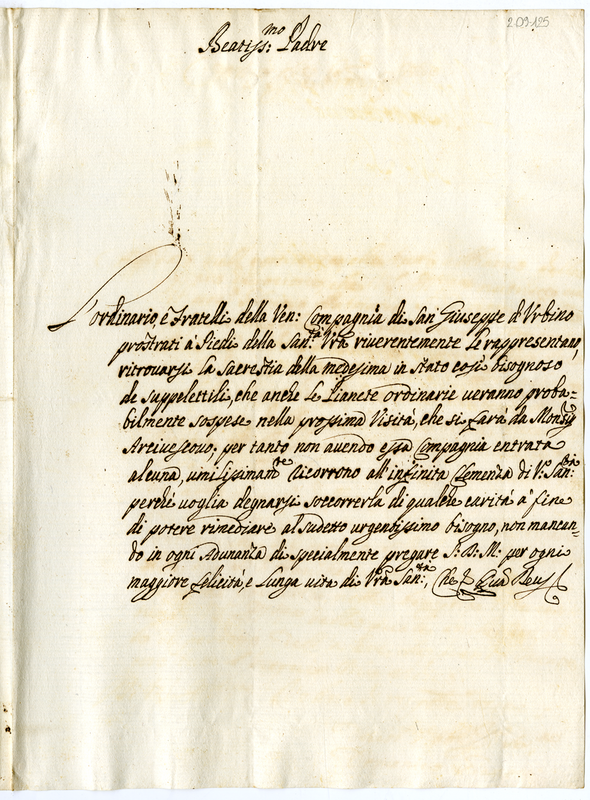 209.125
Beatiss:mo Padre
L'ordinario, e Fratelli della Ven: Compagnia di San Giuseppe d'Urbino
prostrati à Piedi della San:tà Vrã riverentemente Le rappresentano
ritrovarsi la Sacrestia della medesima in stato così bisognoso
de suppelettili, che anche le Pianete ordinarie veranno proba=
bilmente sospese nella prossima Visità, che si farà da Monsig
Arcivescovo; per tanto non avendo essa Compagnia entrata
alcuna, umilissimam:te ricorrono all'infinita Clemenza di V:a San:tà
perché voglia degnarsi soccorrerla di qualche carità à fine
di potere rimediare al sudetto urgentissimo bisogno, non mancan=
do in ogni Adunanza di specialmente pregare S: D: M: per ogni
maggiore felicità, e lunga vita di Vrã San:tà, Che